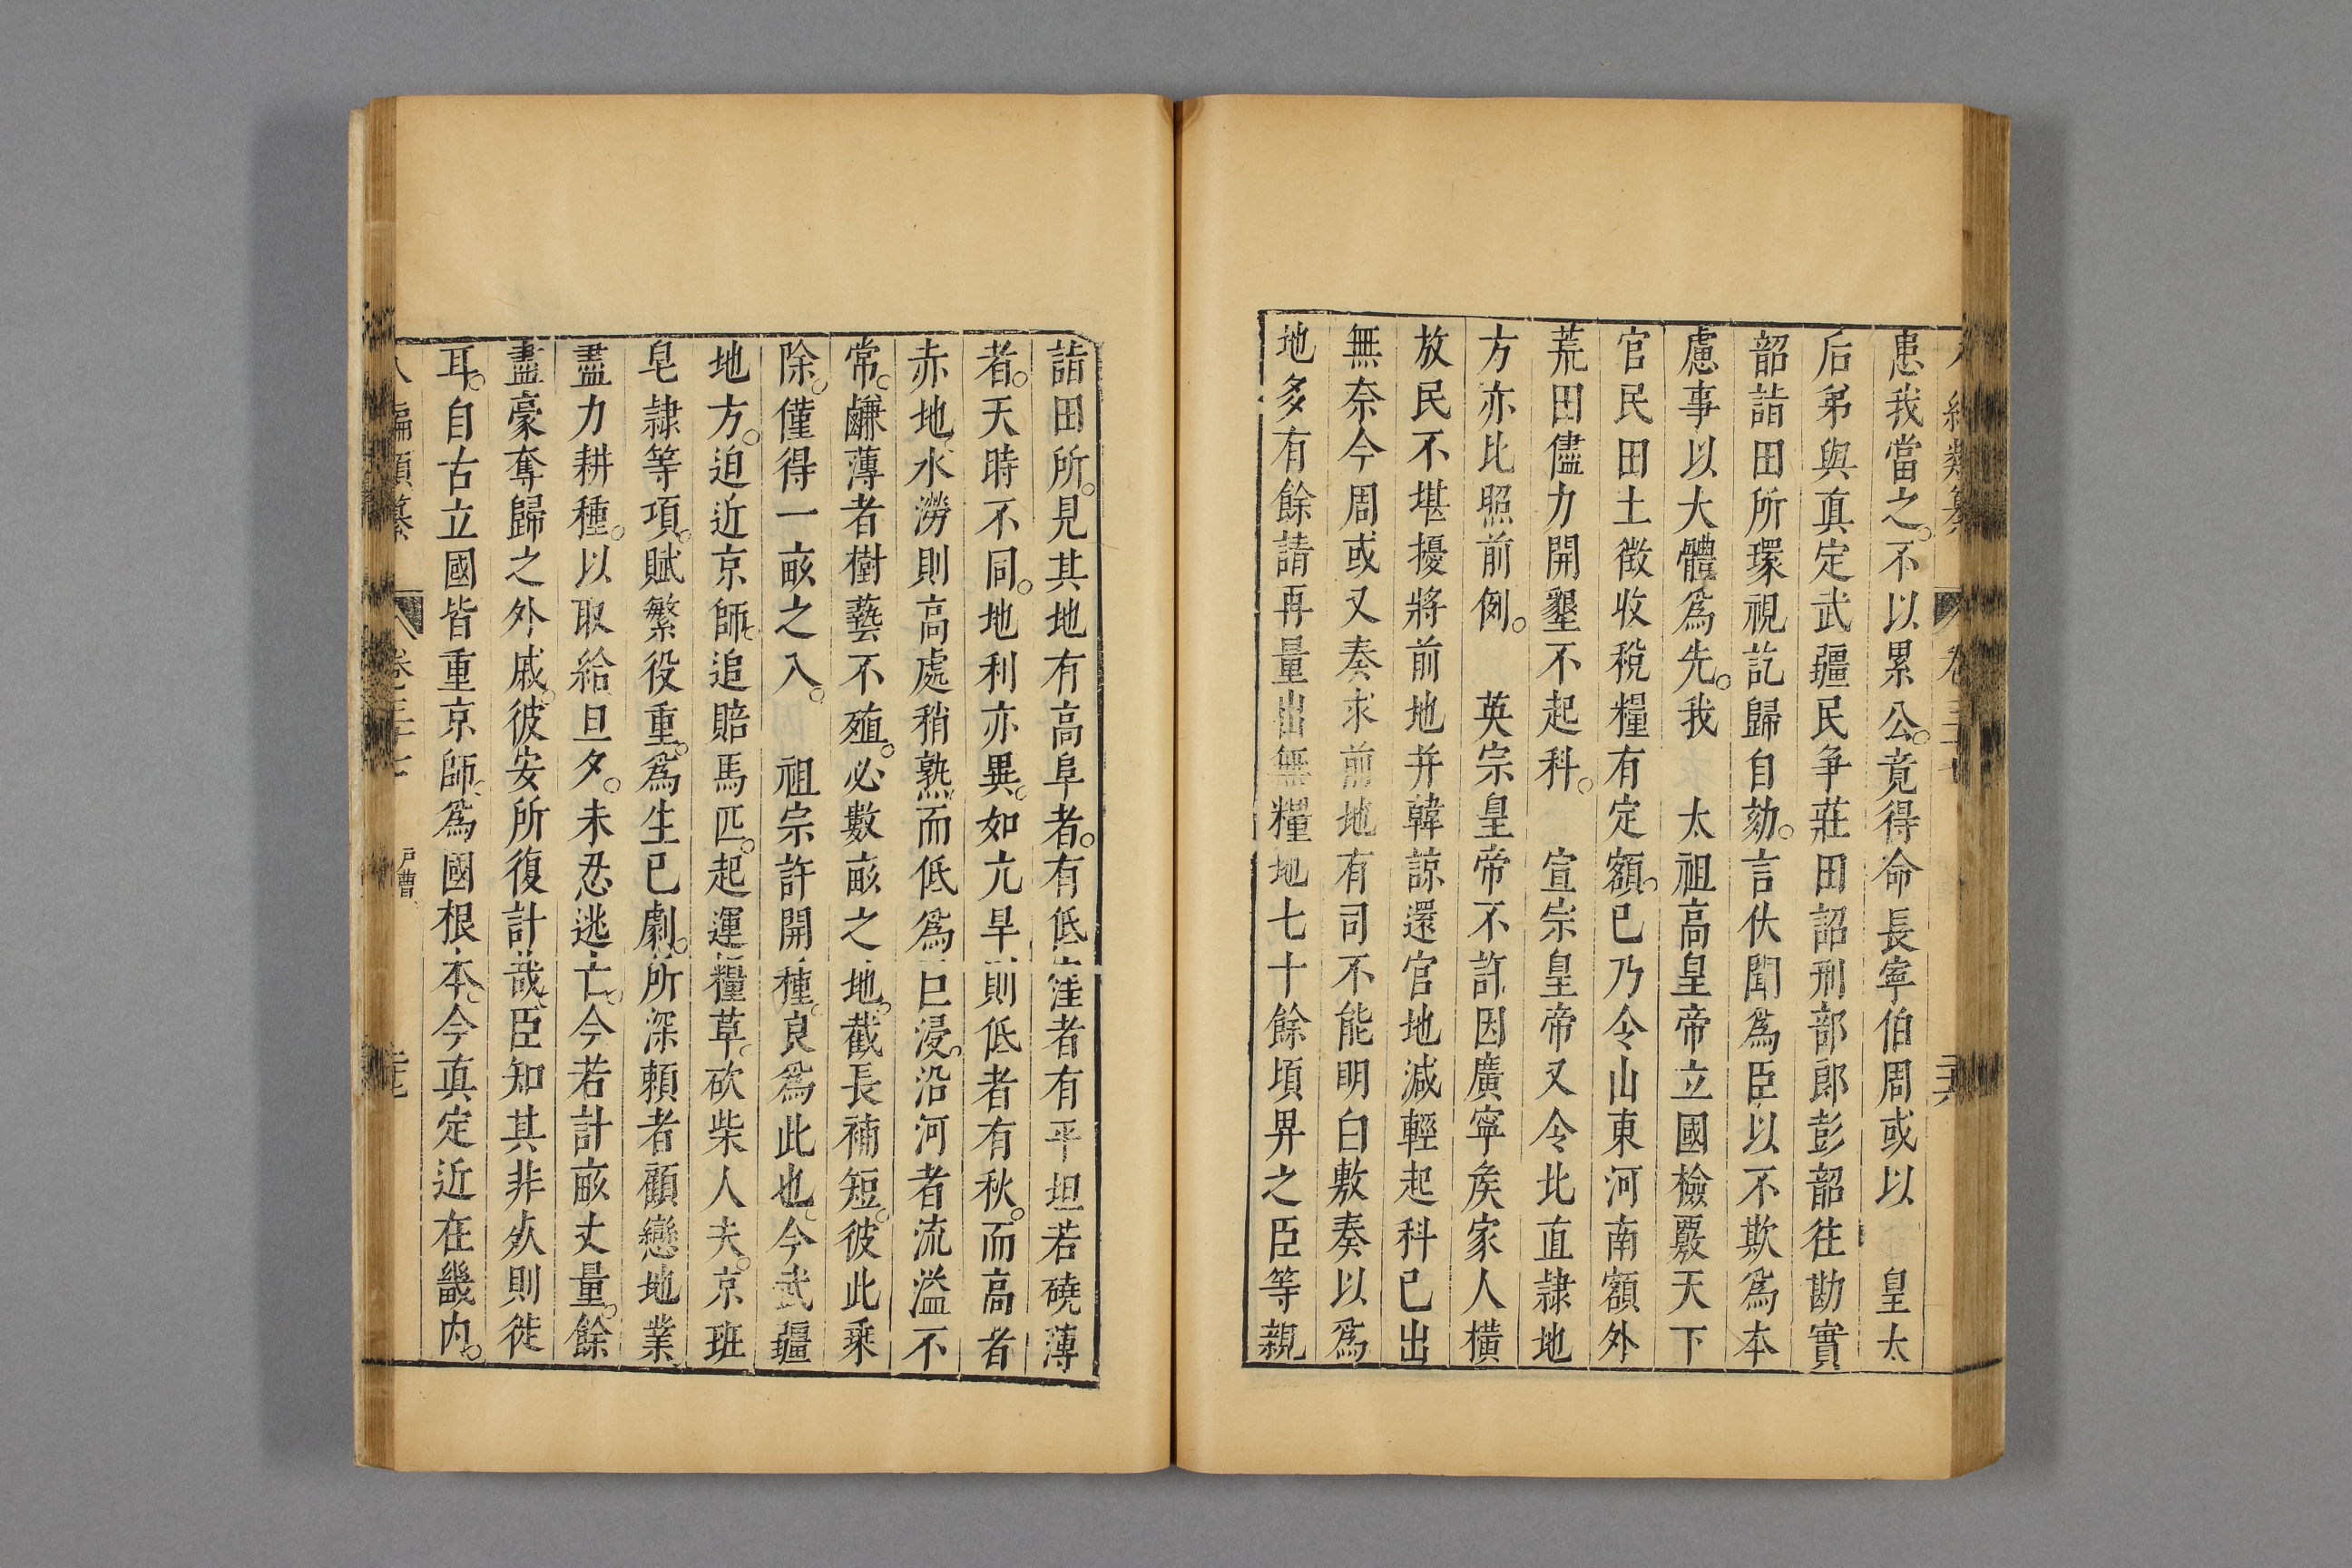 患我當之。不以累公。竟得命長寧伯周或以 皇太
后弟與真定武疆民爭莊田詔刑部郎彭韶往勘實
韶詣田所環視訖歸自劾。言伏聞爲臣以不欺爲本
慮事以大體爲先。我 太祖高皇帝立國檢覈天下
官民田土徵收稅糧有定額。已乃令山東河南額外
荒田儘力開墾不起科。 宣宗皇帝又令北直隸地
方亦比照前例。 英宗皇帝不許因廣寧矦家人橫
放民不堪擾將前地并韓諒還官地減輕起科已出
無奈今周或又奏求前地有司不能明白敷奏以爲
地多有餘請再量出無糧地七十餘頃畀之臣等親
詣田所。見其地有高阜者。有低窪者有平坦若磽薄
者。天時不同。地利亦異。如亢旱則低者有秋。而高者
赤地。水澇則高處稍熟。而低爲巨浸。沿河者流溢不
常。鹻薄者樹藝不殖。必數畝之地。截長補短。彼此乘
除。僅得一畝之入。 祖宗許開種。良爲此也。今武疆
地方。迫近京師。追賠馬匹。起運糧草。砍柴人夫。京班
皂隸等項。賦繁役重。爲生已劇。所深賴者顧戀地業。
盡力耕種。以取給旦夕。未忍逃亡。今若計畝丈量。餘
盡豪奪歸之外戚。彼安所復計哉。臣知其非夾則徙
耳。自古立國皆重京師。爲國根本。今真定近在畿內。
八編類纂 卷之三十七 戶曹 三七